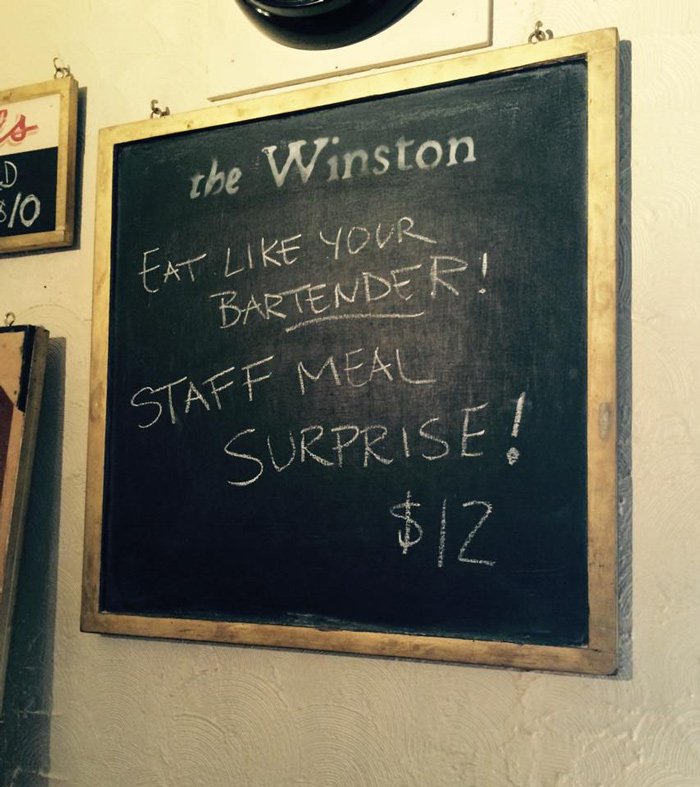 the Winston
EAT LIKE YOUR
BARTENDER!
STAFF MEAL
SURPRISE!
$12
$10